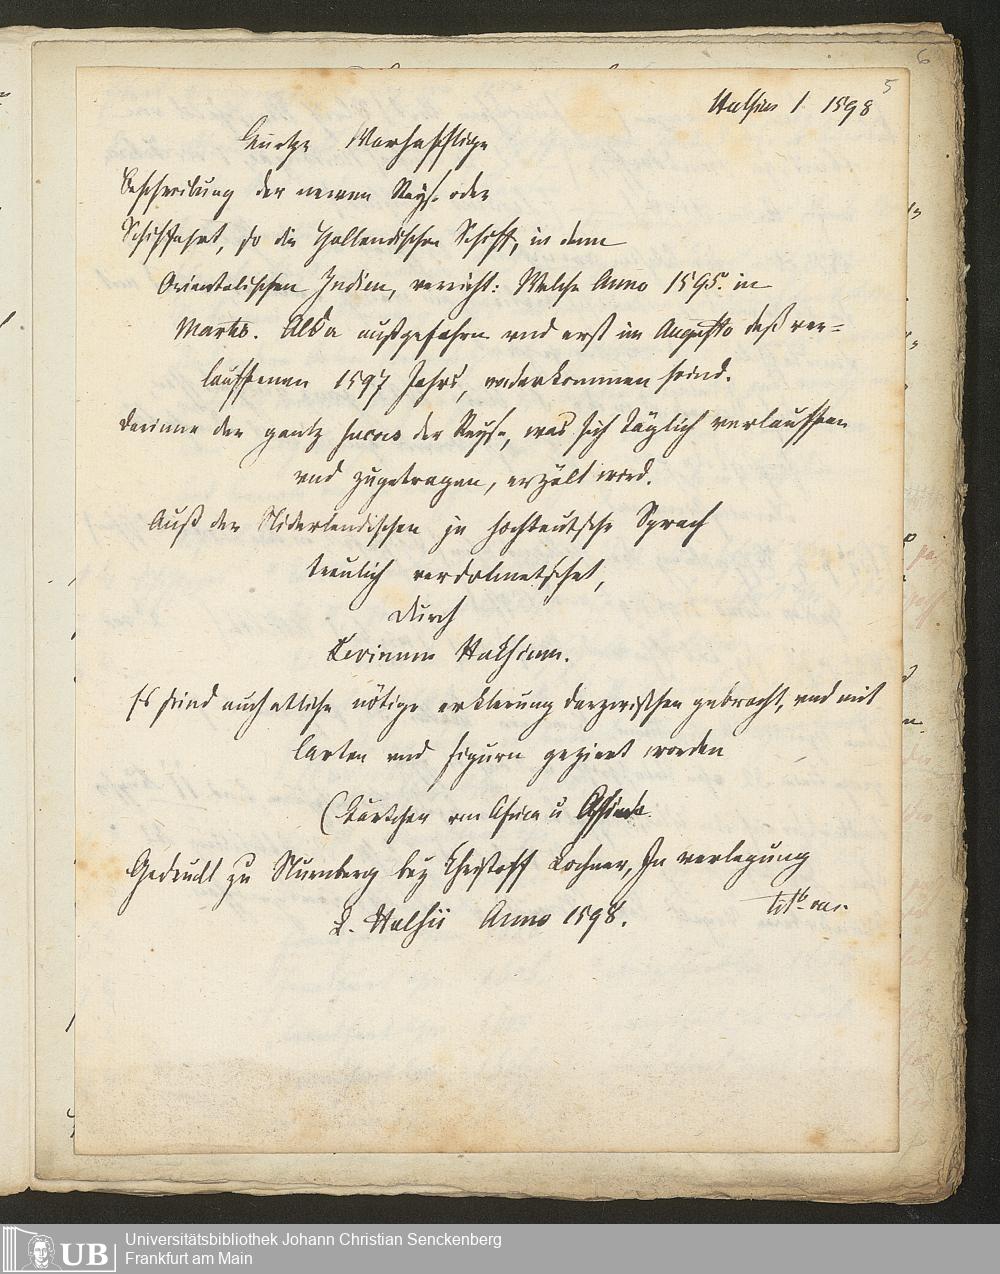 6
5
Hulsius I. 1598
Kurtze Warhafftige
Beschreibung der newen Reyse oder
Schiffahrt, so die Hollendischen Schiff, in denn
Orientalischen Indien, verricht: Welche Anno 1595. in
Martio. Alda außgefahren vnd erst im Augusto deß ver=
lauffenen 1597 Jahrs, widerkommen seind.
Darinne der gantz Success der Reyse, was sich täglich verlauffen
vnd zugetragen, erzält wird.
Auß der Niderlendischen in hochteutsche Sprach
treulich verdolmetschet,
Durch
Levinum Hulsium.
Es seind auch etliche nötige erklerung darzwischen gebracht, vnd mit
Carten vnd figurn gezieret worden
(Kärtchen von Africa u
Gedruckt zu Nurnberg bey Christoff Lochner, In verlegung
L. Hulsii Anno 1598.
Universitätsbibliothek Johann Christian Senckenberg
Frankfurt am Main
UB